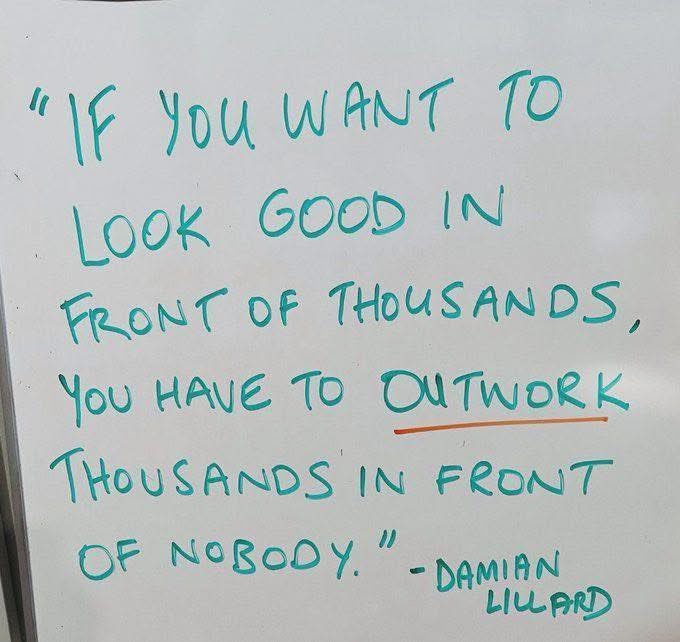 "IF YOU WANT TO
LOOK GOOD IN
FRONT OF THOUSANDS,
YOU HAVE TO OUTWORK
THOUSANDS IN FRONT
OF NOBODY." - DAMIAN
LILLARD